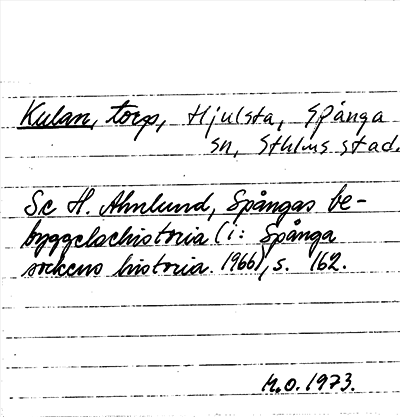 Kulan, torp, Hjulsta, Spånga
sn, Sthlms stad.
Se H. Almlund, Spångas be-
byggelsehistoria (i: Spånga
sockens historia. 1966), s. 162.
M.O. 1973.